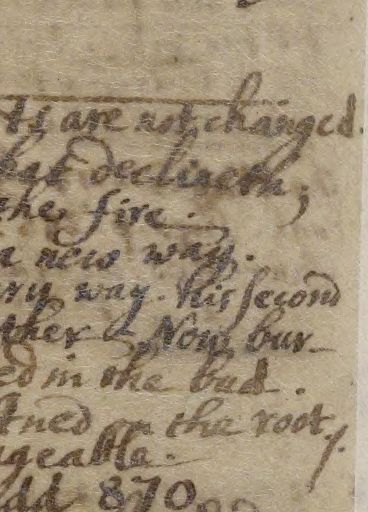 ts are not changed.
hat declineth;
the fire.
a new way.
ry way. his second
ther & Now bur-
ed in the bud.
ned on the root
geable.
dd 870